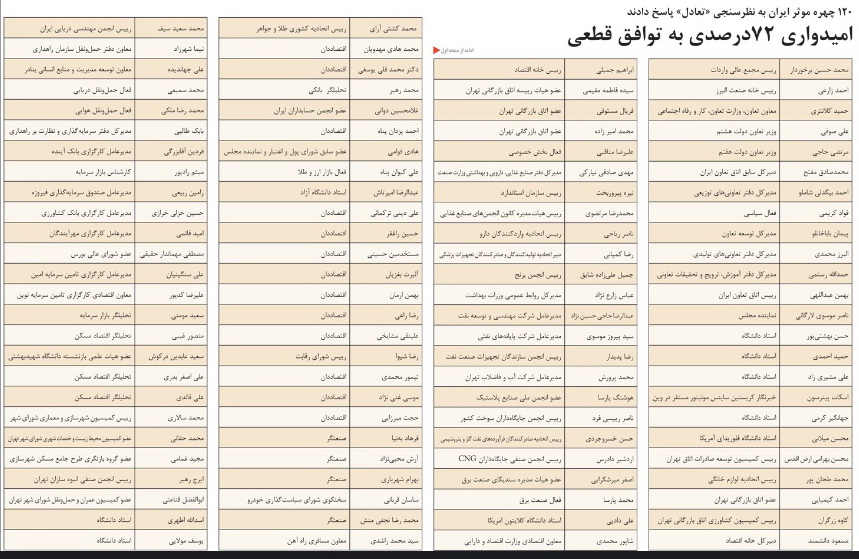 ۱۲۰ چهره موثر ایران به نظرسنجی «تعادل» پاسخ دادند
امیدواری ۷۲درصدی به توافق قطعی
ادامه از صفحه اول
محمد حسین برخوردار رییس مجمع عالی واردات
احمد زارعی رییس خانه صنعت البرز
حمید کلانتری معاون تعاون، وزارت تعاون، کار و رفاه اجتماعی
علی صوفی وزیر تعاون دولت هشتم
مرتضی حاجی وزیر تعاون دولت هفتم
محمدصادق مفتح دبیرکل سابق اتاق تعاون ایران
احمد بیگدلی شاملو مدیرکل دفتر تعاونی‌های توزیعی
فواد کریمی فعال سیاسی
پیمان باباخانلو مدیرکل توسعه تعاون
البرز محمدی مدیرکل دفتر تعاونی‌های تولیدی
حمدالله رستمی مدیرکل دفتر آموزش، ترویج و تحقیقات تعاونی
بهمن عبداللهی رییس اتاق تعاون ایران
ناصر موسوی لارگانی نماینده مجلس
حسن بهشتی‌پور استاد دانشگاه
حمید احمدی استاد دانشگاه
علی مشیری زاد استاد دانشگاه
اسکات پیترسون خبرنگار کریستین ساینس مونیتور مستقر در وین
جهانگیر کرمی استاد دانشگاه
محسن میلانی استاد دانشگاه فلوریدای آمریکا
محسن بهرامی ارض اقدس رییس کمیسیون توسعه صادرات اتاق تهران
محمد طحان پور رییس اتحادیه لوازم خانگی
احمد کیمیایی عضو اتاق بازرگانی تهران
کاوه زرگران رییس کمیسیون کشاورزی اتاق بازرگانی تهران
مسعود دانشمند دبیرکل خانه اقتصاد
ابراهیم جمیلی رییس خانه اقتصاد
سیده فاطمه مقیمی عضو هیات رییسه اتاق بازرگانی تهران
فریال مستوفی عضو اتاق بازرگانی تهران
محمد امیرزاده عضو اتاق بازرگانی تهران
علیرضا مناقبی فعال بخش خصوصی
مهدی صادقی نیارکی مدیرکل دفتر صنایع غذایی، دارویی و بهداشتی وزارت صنعت
نیره پیروزبخت رییس سازمان استاندارد
محمدرضا مرتضوی رییس هیات مدیره کانون انجمن‌های صنایع غذایی
ناصر ریاحی رییس اتحادیه واردکنندگان دارو
رضا کمپانی دبیر اتحادیه تولیدکنندگان و صادرکنندگان تجهیزات پزشکی
جمیل علی‌زاده شایق رییس انجمن برنج
عباس زارع نژاد مدیرکل روابط عمومی وزارت بهداشت
عبدالرضا حاجی حسین نژاد مدیرعامل شرکت مهندسی و توسعه نفت
سید پیروز موسوی مدیرعامل شرکت پایانه‌های نفتی
رضا پدیدار رییس انجمن سازندگان تجهیزات صنعت نفت
محمد پرورش مدیرعامل شرکت آب و فاضلاب تهران
هوشنگ پارسا عضو انجمن ملی صنایع پلاستیک
ناصر رییسی فرد رییس انجمن جایگاه‌داران سوخت کشور
حسن خسروجردی رییس اتحادیه صادرکنندگان فرآورده‌های نفت گاز و پتروشیمی
اردشیر دادرس رییس انجمن صنفی جایگاه‌داران CNG
اصغر میرشکرایی عضو هیات مدیره سندیکای صنعت برق
محمد پارسا فعال صنعت برق
علی دادپی استاد دانشگاه کلایتون امریکا
شاپور محمدی معاون اقتصادی وزارت اقتصاد و دارایی
محمد کشتی آرای رییس اتحادیه کشوری طلا و جواهر
محمد هادی مهدویان اقتصاددان
دکتر محمد قلی یوسفی اقتصاددان
محمد رهبر تحلیلگر بانکی
غلامحسین دوانی عضو انجمن حسابداران ایران
احمد یزدان پناه اقتصاددان
هادی قوامی عضو سابق شورای پول و اعتبار و نماینده مجلس
علی کیوان پناه فعال بازار ارز و طلا
عبدالرضا امیرتاش استاد دانشگاه آزاد
علی دینی ترکمانی اقتصاددان
حسین راغفر اقتصاددان
مستخدمین حسینی اقتصاددان
آلبرت بغزیان اقتصاددان
بهمن آرمان اقتصاددان
رضا راعی اقتصاددان
علینقی مشایخی اقتصاددان
رضا شیوا رییس شورای رقابت
تیمور محمدی اقتصاددان
موسی غنی نژاد اقتصاددان
حجت میرزایی اقتصاددان
فرهاد به‌نیا صنعتگر
آرش محبی‌نژاد صنعتگر
بهرام شهریاری صنعتگر
ساسان قربانی سخنگوی شورای سیاست‌گذاری خودرو
محمد رضا نجفی منش صنعتگر
سید محمد راشدی معاون مسافری راه آهن
محمد سعید سیف رییس انجمن مهندسی دریایی ایران
نیما شهرزاد معاون دفتر حمل‌ونقل سازمان راهداری
علی جهاندیده معاون توسعه مدیریت و منابع انسانی بنادر
محمد سمیعی فعال حمل‌ونقل دریایی
محمد رضا ملکی فعال حمل‌ونقل هوایی
بابک طالبی مدیرکل دفتر سرمایه‌گذاری و نظارت بر راهداری
فردین آقابزرگی مدیرعامل کارگزاری بانک آینده
میثم رادپور کارشناس بازار سرمایه
رامین ربیعی مدیرعامل صندوق سرمایه‌گذاری فیروزه
حسین خزلی خرازی مدیرعامل کارگزاری بانک کشاورزی
امید قائمی مدیرعامل کارگزاری مهرآیندگان
مصطفی مهماندار حقیقی عضو شورای عالی بورس
علی سنگینیان مدیرعامل کارگزاری تامین سرمایه امین
علیرضا کدیور معاون اقتصادی کارگزاری تامین سرمایه نوین
سعید مومنی تحلیلگر بازار سرمایه
منصور غیبی تحلیلگر اقتصاد مسکن
سعید عابدین درکوش عضو هیات علمی بازنشسته دانشگاه شهیدبهشتی
علی اصغر بدری تحلیلگر اقتصاد مسکن
علی قائدی تحلیلگر اقتصاد مسکن
محمد سالاری رییس کمیسیون شهرسازی و معماری شورای شهر
محمد حقانی عضو کمیسیون محیط زیست و خدمات شهری شورای شهر تهران
مجید غمامی عضو گروه بازنگری طرح جامع مسکن شهرسازی
ایرج رهبر رییس انجمن صنفی انبوه سازان تهران
ابوالفضل قناعتی عضو کمیسیون عمران و حمل‌ونقل شورای شهر تهران
اسدالله اطهری استاد دانشگاه
یوسف مولایی استاد دانشگاه